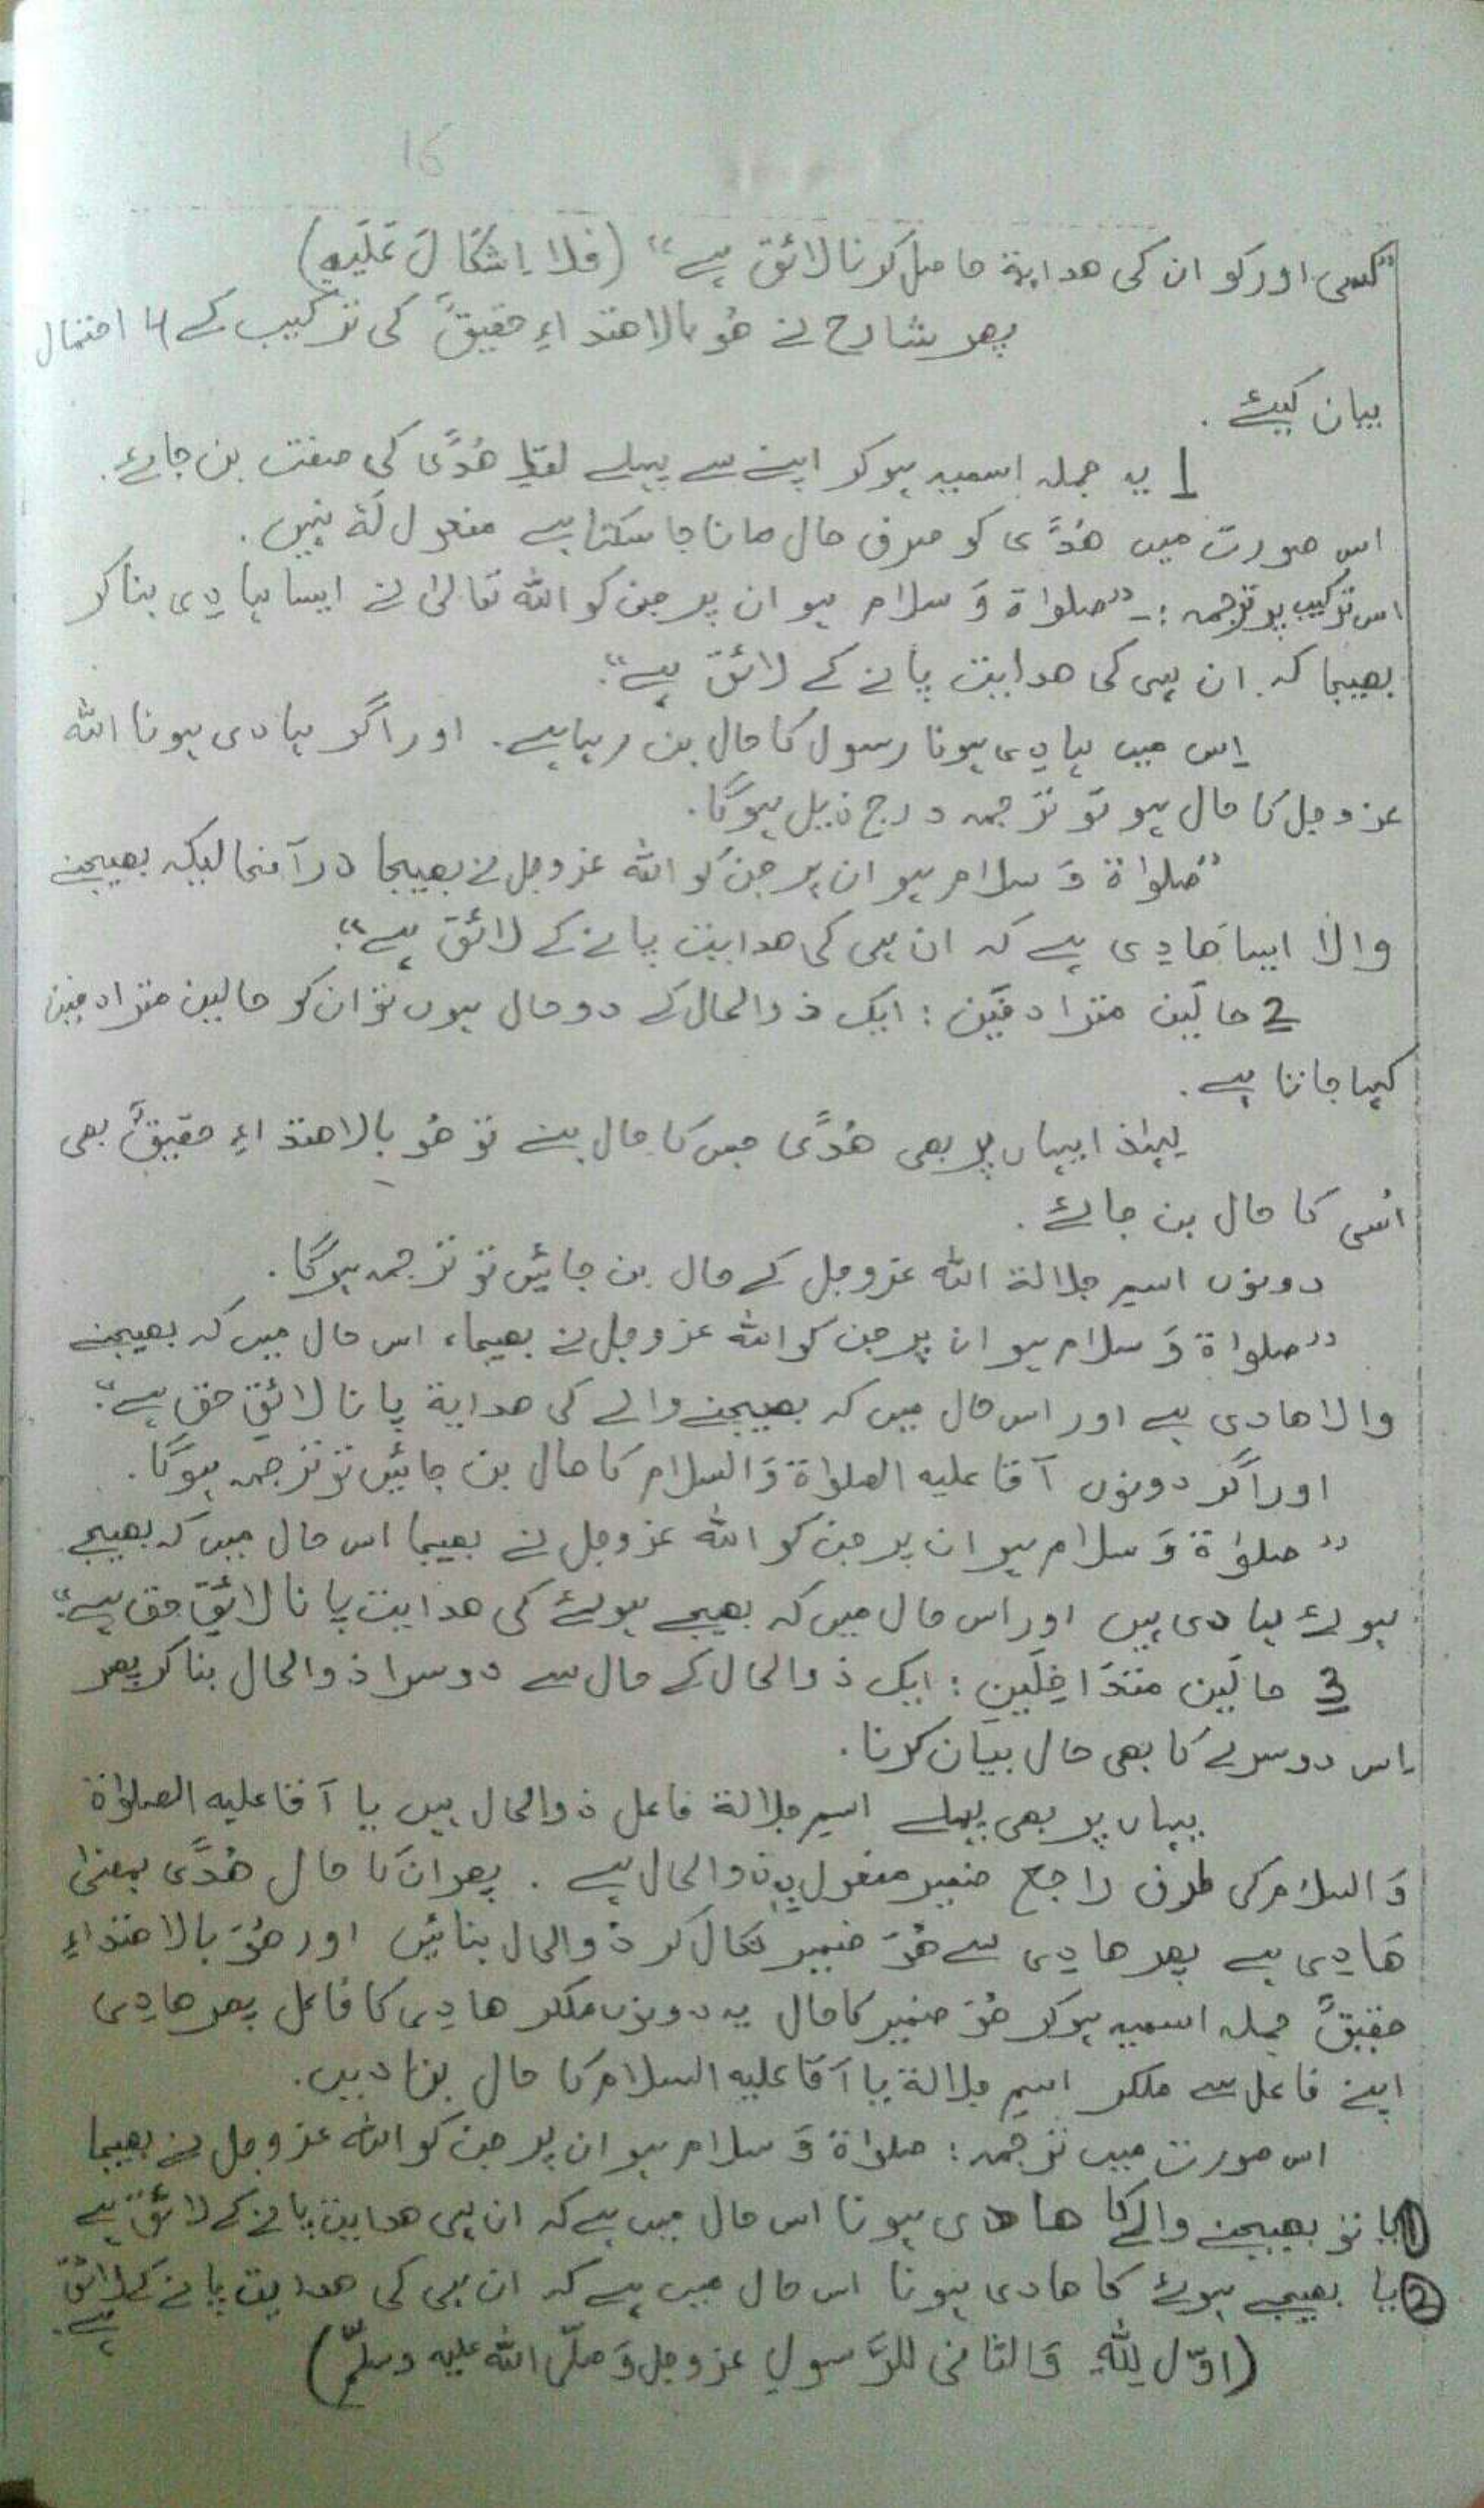 16
”کسی اور کو ان کی ھدایۃ حاصل کرنا لائق ہے“ (فلا اِشکَالَ عَلَیہِ)
پھر شارح نے ھُوَ بالاھتداءِ حقیقٌ کی ترکیب کے 4 احتمال
بیان کیئے .
1 یہ جملہ اسمیہ ہوکر اپنے سے پہلے لفظِ ھُدًی کی صفت بن جائے.
اس صورت میں ھُدًی کو صرف حال مانا جا سکتا ہے مفعول لَہٗ نہیں .
اس ترکیب پر ترجمہ :۔ ”صلواۃ وَ سلام ہو ان پر جن کو اللہ تَعَالیٰ نے ایسا ہادِی بنا کر
بھیجا کہ ان ہی کی ھدایت پانے کے لائق ہے“.
اِس میں ہادِی ہونا رسول کا حال بن رہا ہے . اور اگر ہادی ہونا اللہ
عزوجل کا حال ہو تو ترجمہ درج ذیل ہوگا.
”صلواۃ وَ سلام ہو ان پر جن کو اللہ عزوجل نے بھیجا درآنحالیکہ بھیجنے
والا ایسا ھَادِی ہے کہ ان ہی کی ھدایت پانے کے لائق ہے“.
2 حالَین مترادفَین : ایک ذوالحال کے دو حال ہوں تو ان کو حالین مترادفین
کہا جاتا ہے .
لہٰذا یہاں پر بھی ھُدًی جس کا حال بنے تو ھُوَ بالاھتداءِ حقیقٌ بھی
اُسی کا حال بن جائے .
دونوں اسمِ جلالۃ اللہ عزوجل کے حال بن جائیں تو ترجمہ ہوگا .
”صلواۃ وَ سلام ہو ان پر جن کو اللہ عزوجل نے بھیجا، اس حال میں کہ بھیجنے
والا ھادی ہے اور اس حال میں کہ بھیجنے والے کی ھدایۃ پانا لائقِ حق ہے“.
اور اگر دونوں آقا علیہ الصلواۃ وَالسلام کا حال بن جائیں تو ترجمہ ہوگا .
”صلوٰۃ وَ سلام ہو ان پر جن کو اللہ عزوجل نے بھیجا اس حال میں کہ بھیجے
ہوئے ہادی ہیں اور اس حال میں کہ بھیجے ہوئے کی ھدایت پانا لائقِ حق ہے“.
3 حالَین متَدَاخِلَین : ایک ذوالحال کے حال سے دوسرا ذوالحال بنا کر پھر
اِس دوسرے کا بھی حال بیَان کرنا .
یہاں پر بھی پہلے اسمِ جلالۃ فاعل ذوالحال ہیں یا آقا علیہ الصلوٰۃ
وَالسلام کی طرف راجع ضمیر مفعول بِہٖ ذوالحال ہے . پھر ان کا حال ھُدًی بمعنیٰ
ھَادِی ہے پھر ھادِی سے ھُوَ ضمیر نکال کر ذوالحال بنائیں اور ھُوَ بالاھتداءِ
حقیقٌ جملہ اسمیہ ہوکر ھُوَ ضمیر کا حال یہ دونوں ملکر ھادِی کا فاعل پھر ھادِی
اپنے فاعل سے ملکر اسمِ جلالۃ یا آقا علیہ السلام کا حال بنا دیں.
اس صورت میں ترجمہ : صلواۃ وَ سلام ہو ان پر جن کو اللہ عزوجل نے بھیجا
① یا تو بھیجنے والے کا ھادی ہونا اس حال میں ہے کہ ان ہی ھدایت پانے کے لائق ہے
② یا بھیجے ہوئے کا ھادی ہونا اس حال میں ہے کہ ان ہی کی ھدایت پانے کے لائق
ہے.
(اوّل لِلّٰہِ وَالثانی للرَّسولِ عزوجل وَ صلّی اللہ علیہ وسلّم)